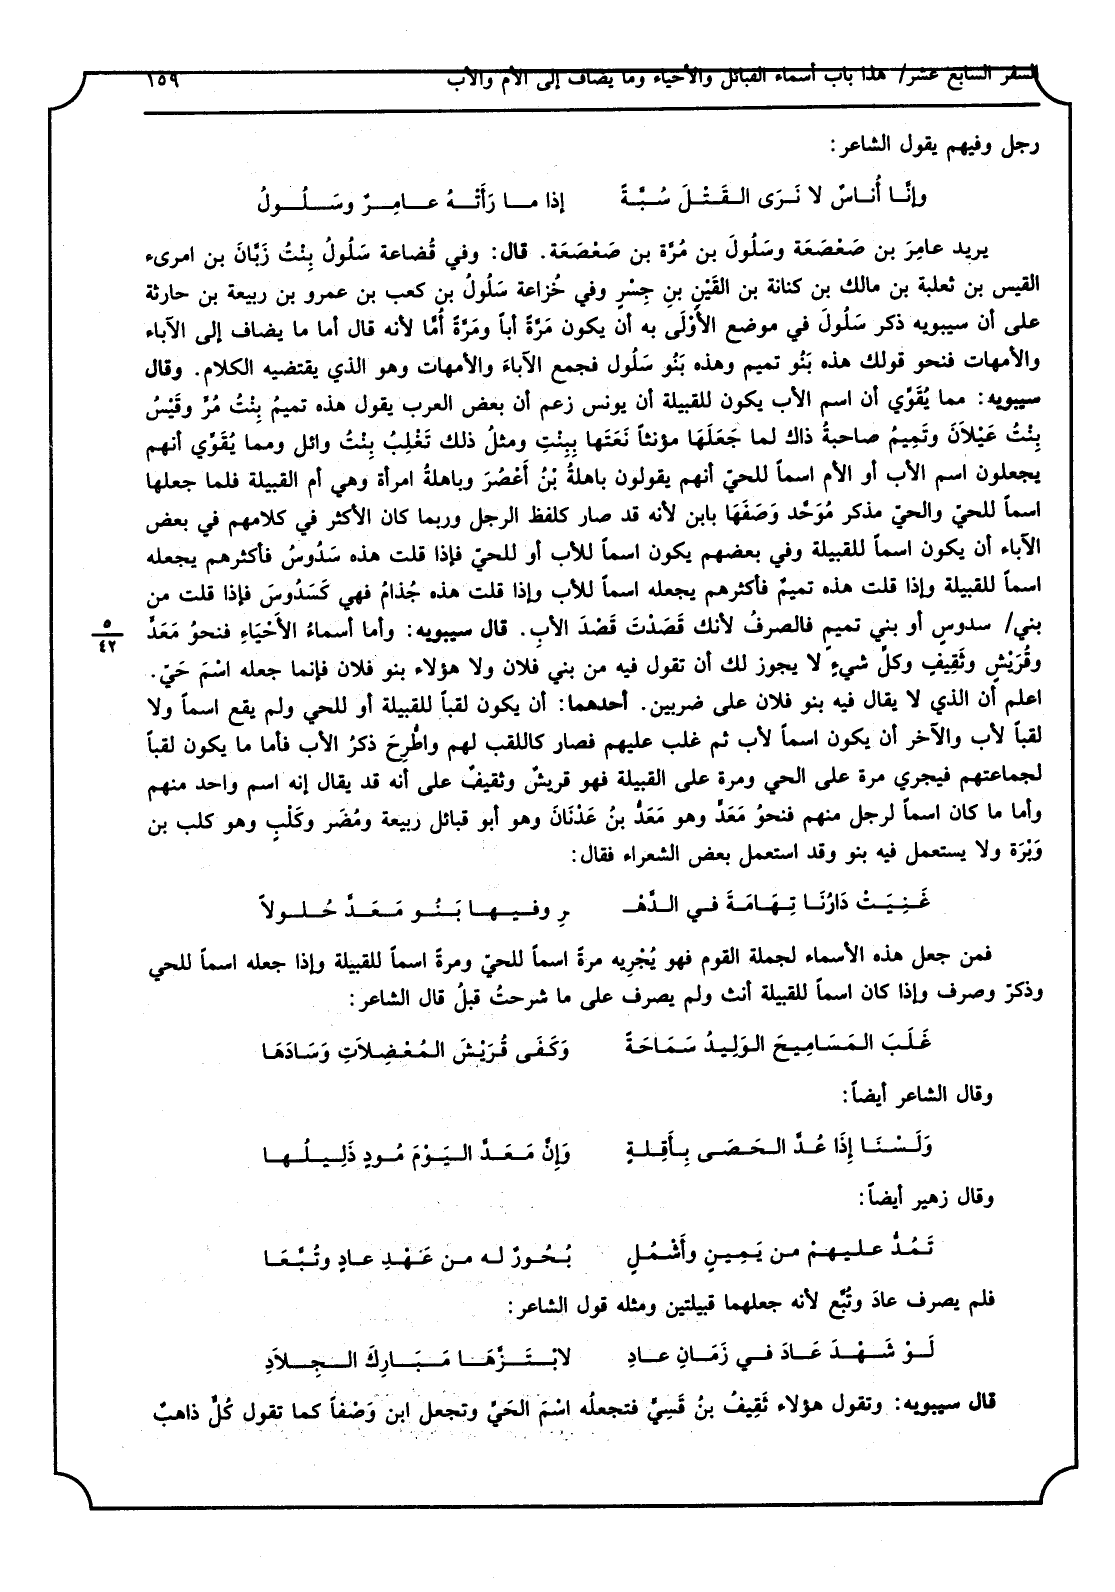 السفر السابع عشر/ هذا باب أسماء القبائل والأحياء وما يضاف إلى الأم والأب ١٥٩
رجل وفيهم يقول الشاعر:
وإنَّـا أُنـاسٌ لا نَـرَى الـقَـتْـلَ سُـبَّـةً إذا مـا رَأَتْـهُ عـامِـرٌ وسَـلُـولُ
يريد عامِرَ بن صَعْصَعَة وسَلُولَ بن مُرَّة بن صَعْصَعَة. قال: وفي قُضاعة سَلُولُ بِنْتُ زَبَّانَ بن امرىء
القيس بن ثعلبة بن مالك بن كنانة بن القَيْنِ بنِ جِسْرٍ وفي خُزاعة سَلُولُ بن كعب بن عمرو بن ربيعة بن حارثة
على أن سيبويه ذكر سَلُولَ في موضع الأوْلَى به أن يكون مَرَّةً أباً ومَرَّةً أُمًّا لأنه قال أما ما يضاف إلى الآباء
والأمهات فنحو قولك هذه بَنُو تميم وهذه بَنُو سَلُول فجمع الآباءَ والأمهات وهو الذي يقتضيه الكلام. وقال
سيبويه: مما يُقَوِّي أن اسم الأب يكون للقبيلة أن يونس زعم أن بعض العرب يقول هذه تميمُ بِنْتُ مُرٍّ وقَيْسُ
بِنْتُ عَيْلاَنَ وتَمِيمُ صاحبةُ ذاك لما جَعَلَهَا مؤنثاً نَعَتَها بِبِنْتٍ ومثلُ ذلك تَغْلِبُ بِنْتُ وائل ومما يُقَوِّي أنهم
يجعلون اسم الأب أو الأم اسماً للحيّ أنهم يقولون باهلةُ بْنُ أَعْصُرَ وباهلةُ امرأة وهي أم القبيلة فلما جعلها
اسماً للحيّ والحيّ مذكر مُوَحَّد وَصَفَهَا بابن لأنه قد صار كلفظ الرجل وربما كان الأكثر في كلامهم في بعض
الآباء أن يكون اسماً للقبيلة وفي بعضهم يكون اسماً للأب أو للحيّ فإذا قلت هذه سَدُوسُ فأكثرهم يجعله
اسماً للقبيلة وإذا قلت هذه تميمٌ فأكثرهم يجعله اسماً للأب وإذا قلت هذه جُذامُ فهي كَسَدُوسَ فإذا قلت من
بني/ سدوسٍ أو بني تميمٍ فالصرفُ لأنك قَصَدْتَ قَصْدَ الأبِ. قال سيبويه: وأما أسماءُ الأَحْيَاءِ فنحوُ مَعَدٍّ
٥
٤٢
وقُرَيْشٍ وثَقِيفٍ وكلِّ شيءٍ لا يجوز لك أن تقول فيه من بني فلان ولا هؤلاء بنو فلان فإنما جعله اسْمَ حَيّ.
اعلم أن الذي لا يقال فيه بنو فلان على ضربين. أحدهما: أن يكون لقباً للقبيلة أو للحي ولم يقع اسماً ولا
لقباً لأب والآخر أن يكون اسماً لأب ثم غلب عليهم فصار كاللقب لهم واطُّرِحَ ذكرُ الأب فأما ما يكون لقباً
لجماعتهم فيجري مرة على الحي ومرة على القبيلة فهو قريشٌ وثقيفٌ على أنه قد يقال إنه اسم واحد منهم
وأما ما كان اسماً لرجل منهم فنحوُ مَعَدٍّ وهو مَعَدُّ بنُ عَدْنَانَ وهو أبو قبائل ربيعة ومُضَر وكَلْبٍ وهو كلب بن
وَبْرَة ولا يستعمل فيه بنو وقد استعمل بعض الشعراء فقال:
غَـنِـيَـتْ دَارُنَـا تِـهَـامَـةَ فـي الـدَّهْـ ـرِ وفـيـهـا بَـنُـو مَـعَـدٍّ حُـلـولاَ
فمن جعل هذه الأسماء لجملة القوم فهو يُجْرِيه مرةً اسماً للحيّ ومرةً اسماً للقبيلة وإذا جعله اسماً للحي
وذكرّ وصرف وإذا كان اسماً للقبيلة أنث ولم يصرف على ما شرحتُ قبلُ قال الشاعر:
غَـلَـبَ الـمَـسَـامِـيـحَ الـوَلِـيـدُ سَـمَـاحَـةً وَكَـفَـى قُـرَيْـشَ الـمُـعْـضِـلاَتِ وَسَـادَهَـا
وقال الشاعر أيضاً:
وَلَـسْـنَـا إِذَا عُـدَّ الـحَـصَـى بِـأَقِـلـةٍ وَإِنَّ مَـعَـدَّ الـيَـوْمَ مُـودٍ ذَلِـيـلُـهـا
وقال زهير أيضاً:
تَـمُـدُّ عـلـيـهـمْ مـن يَـمِـيـنٍ وأَشْـمُـلٍ بُـحُـورٌ لـه مـن عَـهْـدِ عـادٍ وتُـبَّـعَـا
فلم يصرف عادَ وتُبَّع لأنه جعلهما قبيلتين ومثله قول الشاعر:
لَـوْ شَـهْـدَ عَـادَ فـي زَمَـانِ عـادِ لابْـتَـزَّهَـا مَـبَـارِكَ الـجِـلاَدِ
قال سيبويه: وتقول هؤلاء ثَقِيفُ بنُ قَسِيٍّ فتجعلُه اسْمَ الحَيِّ وتجعل ابن وَصْفاً كما تقول كُلٌّ ذاهبٌ